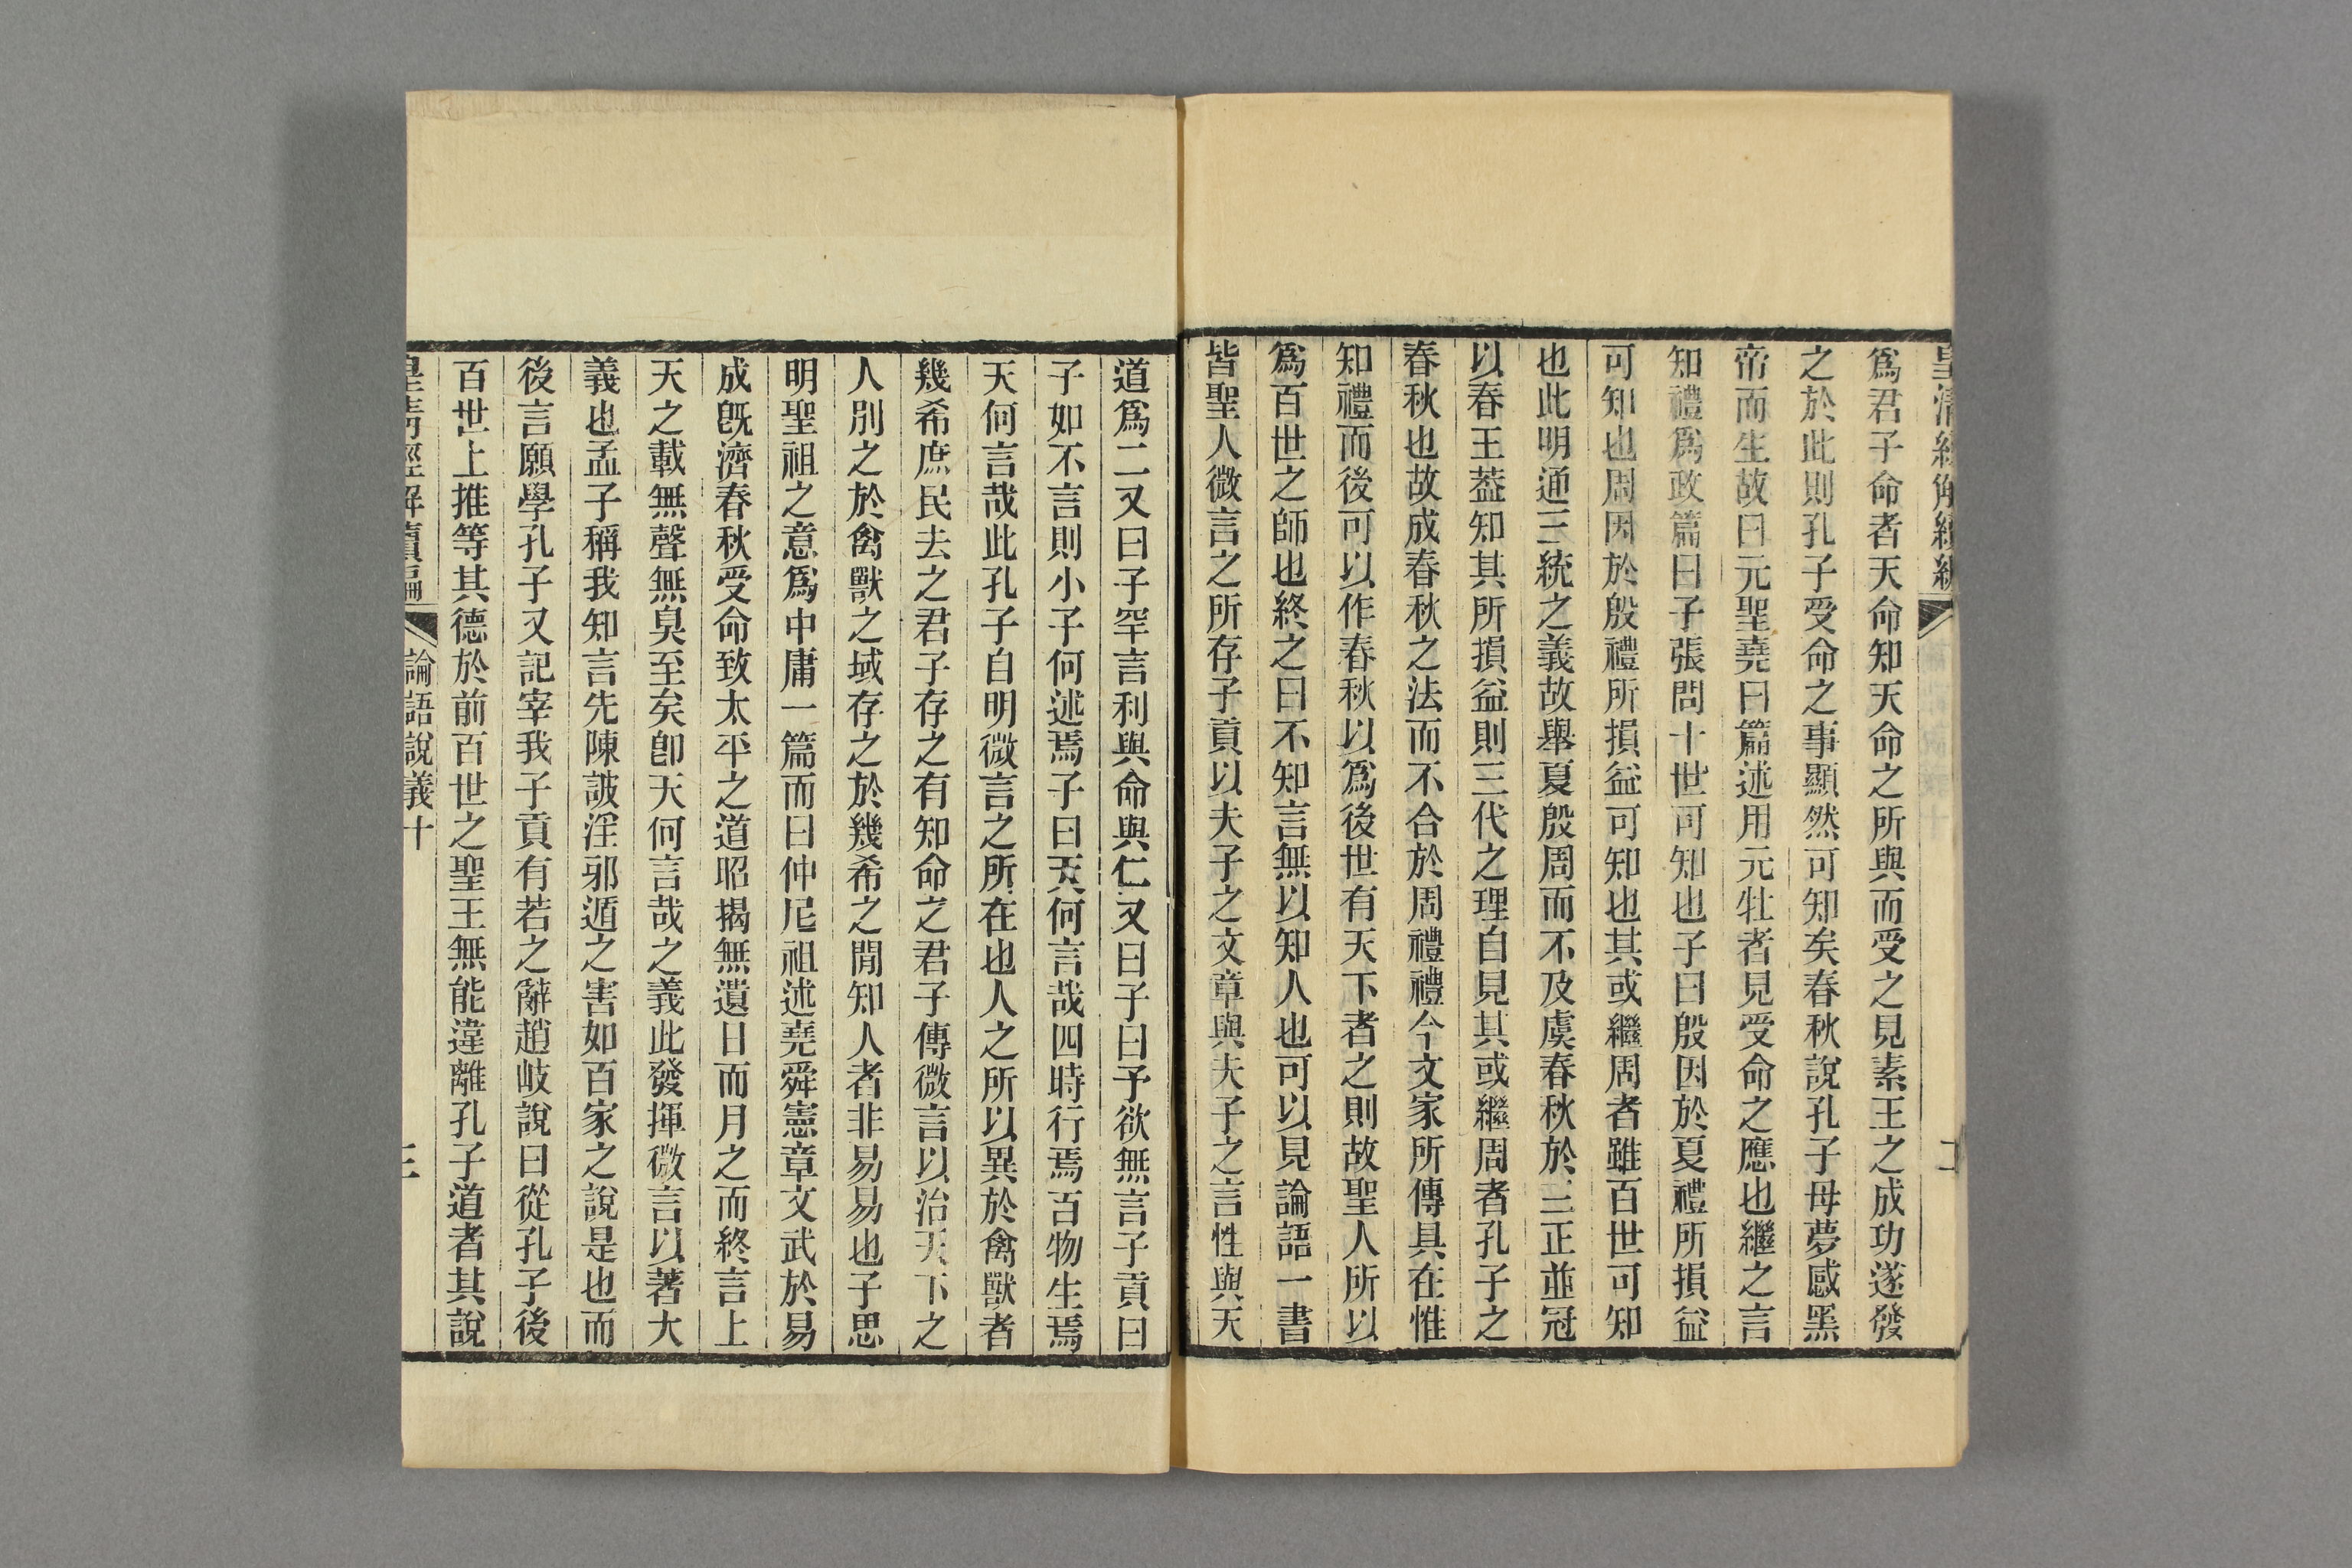 爲君子命者天命知天命之所與而受之見素王之成功遂發
之於此則孔子受命之事顯然可知矣春秋說孔子母夢感黑
帝而生故曰元聖堯曰篇述用元牡者見受命之應也繼之言
知禮爲政篇曰子張問十世可知也子曰殷因於夏禮所損益
可知也周因於殷禮所損益可知也其或繼周者雖百世可知
也此明通三統之義故舉夏殷周而不及虞春秋於三正並冠
以春王葢知其所損益則三代之理自見其或繼周者孔子之
春秋也故成春秋之法而不合於周禮禮今文家所傳具在惟
知禮而後可以作春秋以爲後世有天下者之則故聖人所以
爲百世之師也終之曰不知言無以知人也可以見論語一書
皆聖人微言之所存子貢以夫子之文章與夫子之言性與天
道爲二又曰子罕言利與命與仁又曰子曰予欲無言子貢曰
子如不言則小子何述焉子曰天何言哉四時行焉百物生焉
天何言哉此孔子自明微言之所在也人之所以異於禽獸者
幾希庶民去之君子存之有知命之君子傳微言以治天下之
人別之於禽獸之域存之於幾希之閒知人者非易易也子思
明聖祖之意爲中庸一篇而曰仲尼祖述堯舜憲章文武於易
成旣濟春秋受命致太平之道昭揭無遺日而月之而終言上
天之載無聲無臭至矣卽天何言哉之義此發揮微言以著大
義也孟子稱我知言先陳詖淫邪遁之害如百家之說是也而
後言願學孔子又記宰我子貢有若之辭趙岐說曰從孔子後
百世上推等其德於前百世之聖王無能違離孔子道者其說
皇清經解續編
論語說義十
三